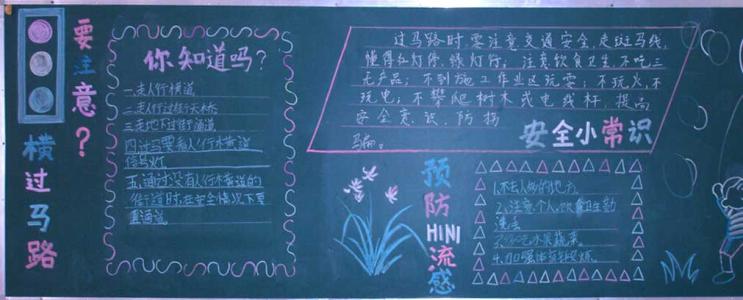 要注意？
横过马路
你知道吗？
一.走人行横道
二.走人行过街天桥
三.走地下过街通道
四.过马要看人行横道
信号灯
五.通过没有人行横道的
街道时,在安全情况下要
直通过
过马路时,要注意交通安全,走斑马线,
懂得红灯停、绿灯行；注意饮食卫生,不吃三
无产品；不到施工作业区玩耍；不玩火,不
玩电；不攀爬树木或电线杆,提高
安全意识,防拐
骗。
安全小常识
预防H1N1流感
1.不去人多的地方
2.注意个人饮食卫生勤
洗
3.多吃水果蔬菜
4.加强体育锻炼